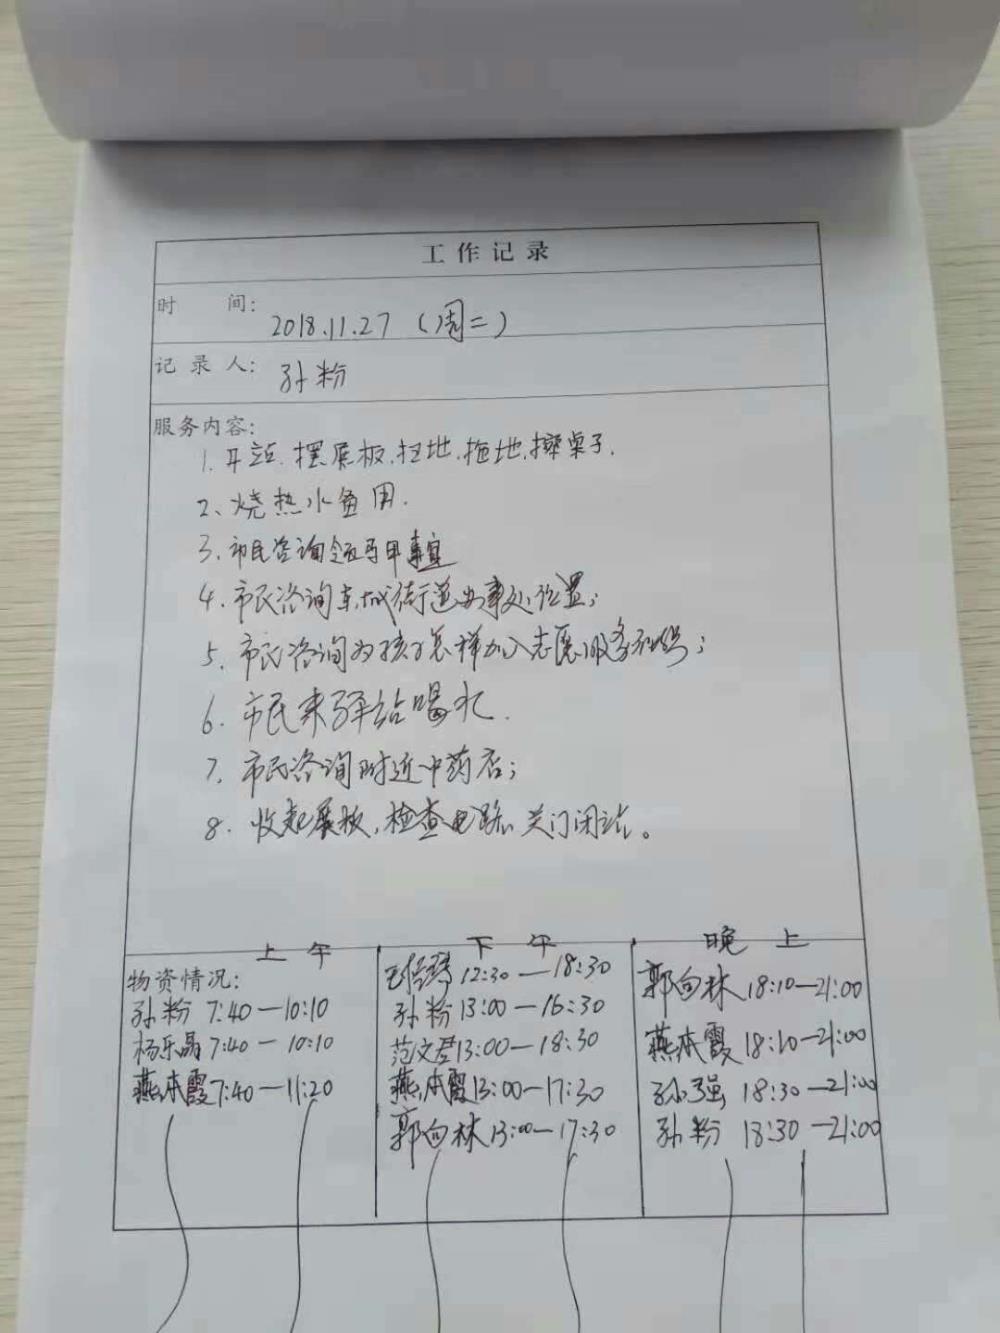 工作记录
时 间: 2018.11.27 (周二)
记录人: 孙粉
服务内容:
1. 开站、摆展板、扫地、拖地、擦桌子.
2、烧热水备用.
3、市民咨询领马甲事宜
4、市民咨询东城街道办事处位置;
5、市民咨询为孩子怎样加入志愿服务组织;
6、市民来驿站喝水.
7、市民咨询附近中药店;
8、收起展板,检查电路、关门闭站。
上午 下午 晚上
物资情况:
孙粉 7:40—10:10
杨乐晶 7:40—10:10
燕本霞 7:40—11:20
12:30—18:30
孙粉 13:00—16:30
范文君 13:00—18:30
燕本霞 13:00—17:30
郭向林 13:00—17:30
郭向林 18:10—21:00
燕本霞 18:10—21:00
孙强 18:30—21:00
孙粉 18:30—21:00